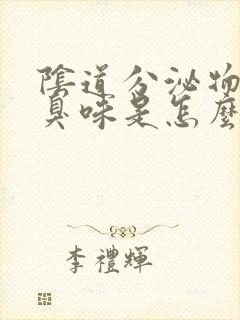 陰道分泌物
臭味是怎麼
李禮輝